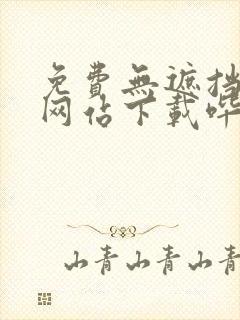 免費無遮挡
网佔下載哔
山青山青山青